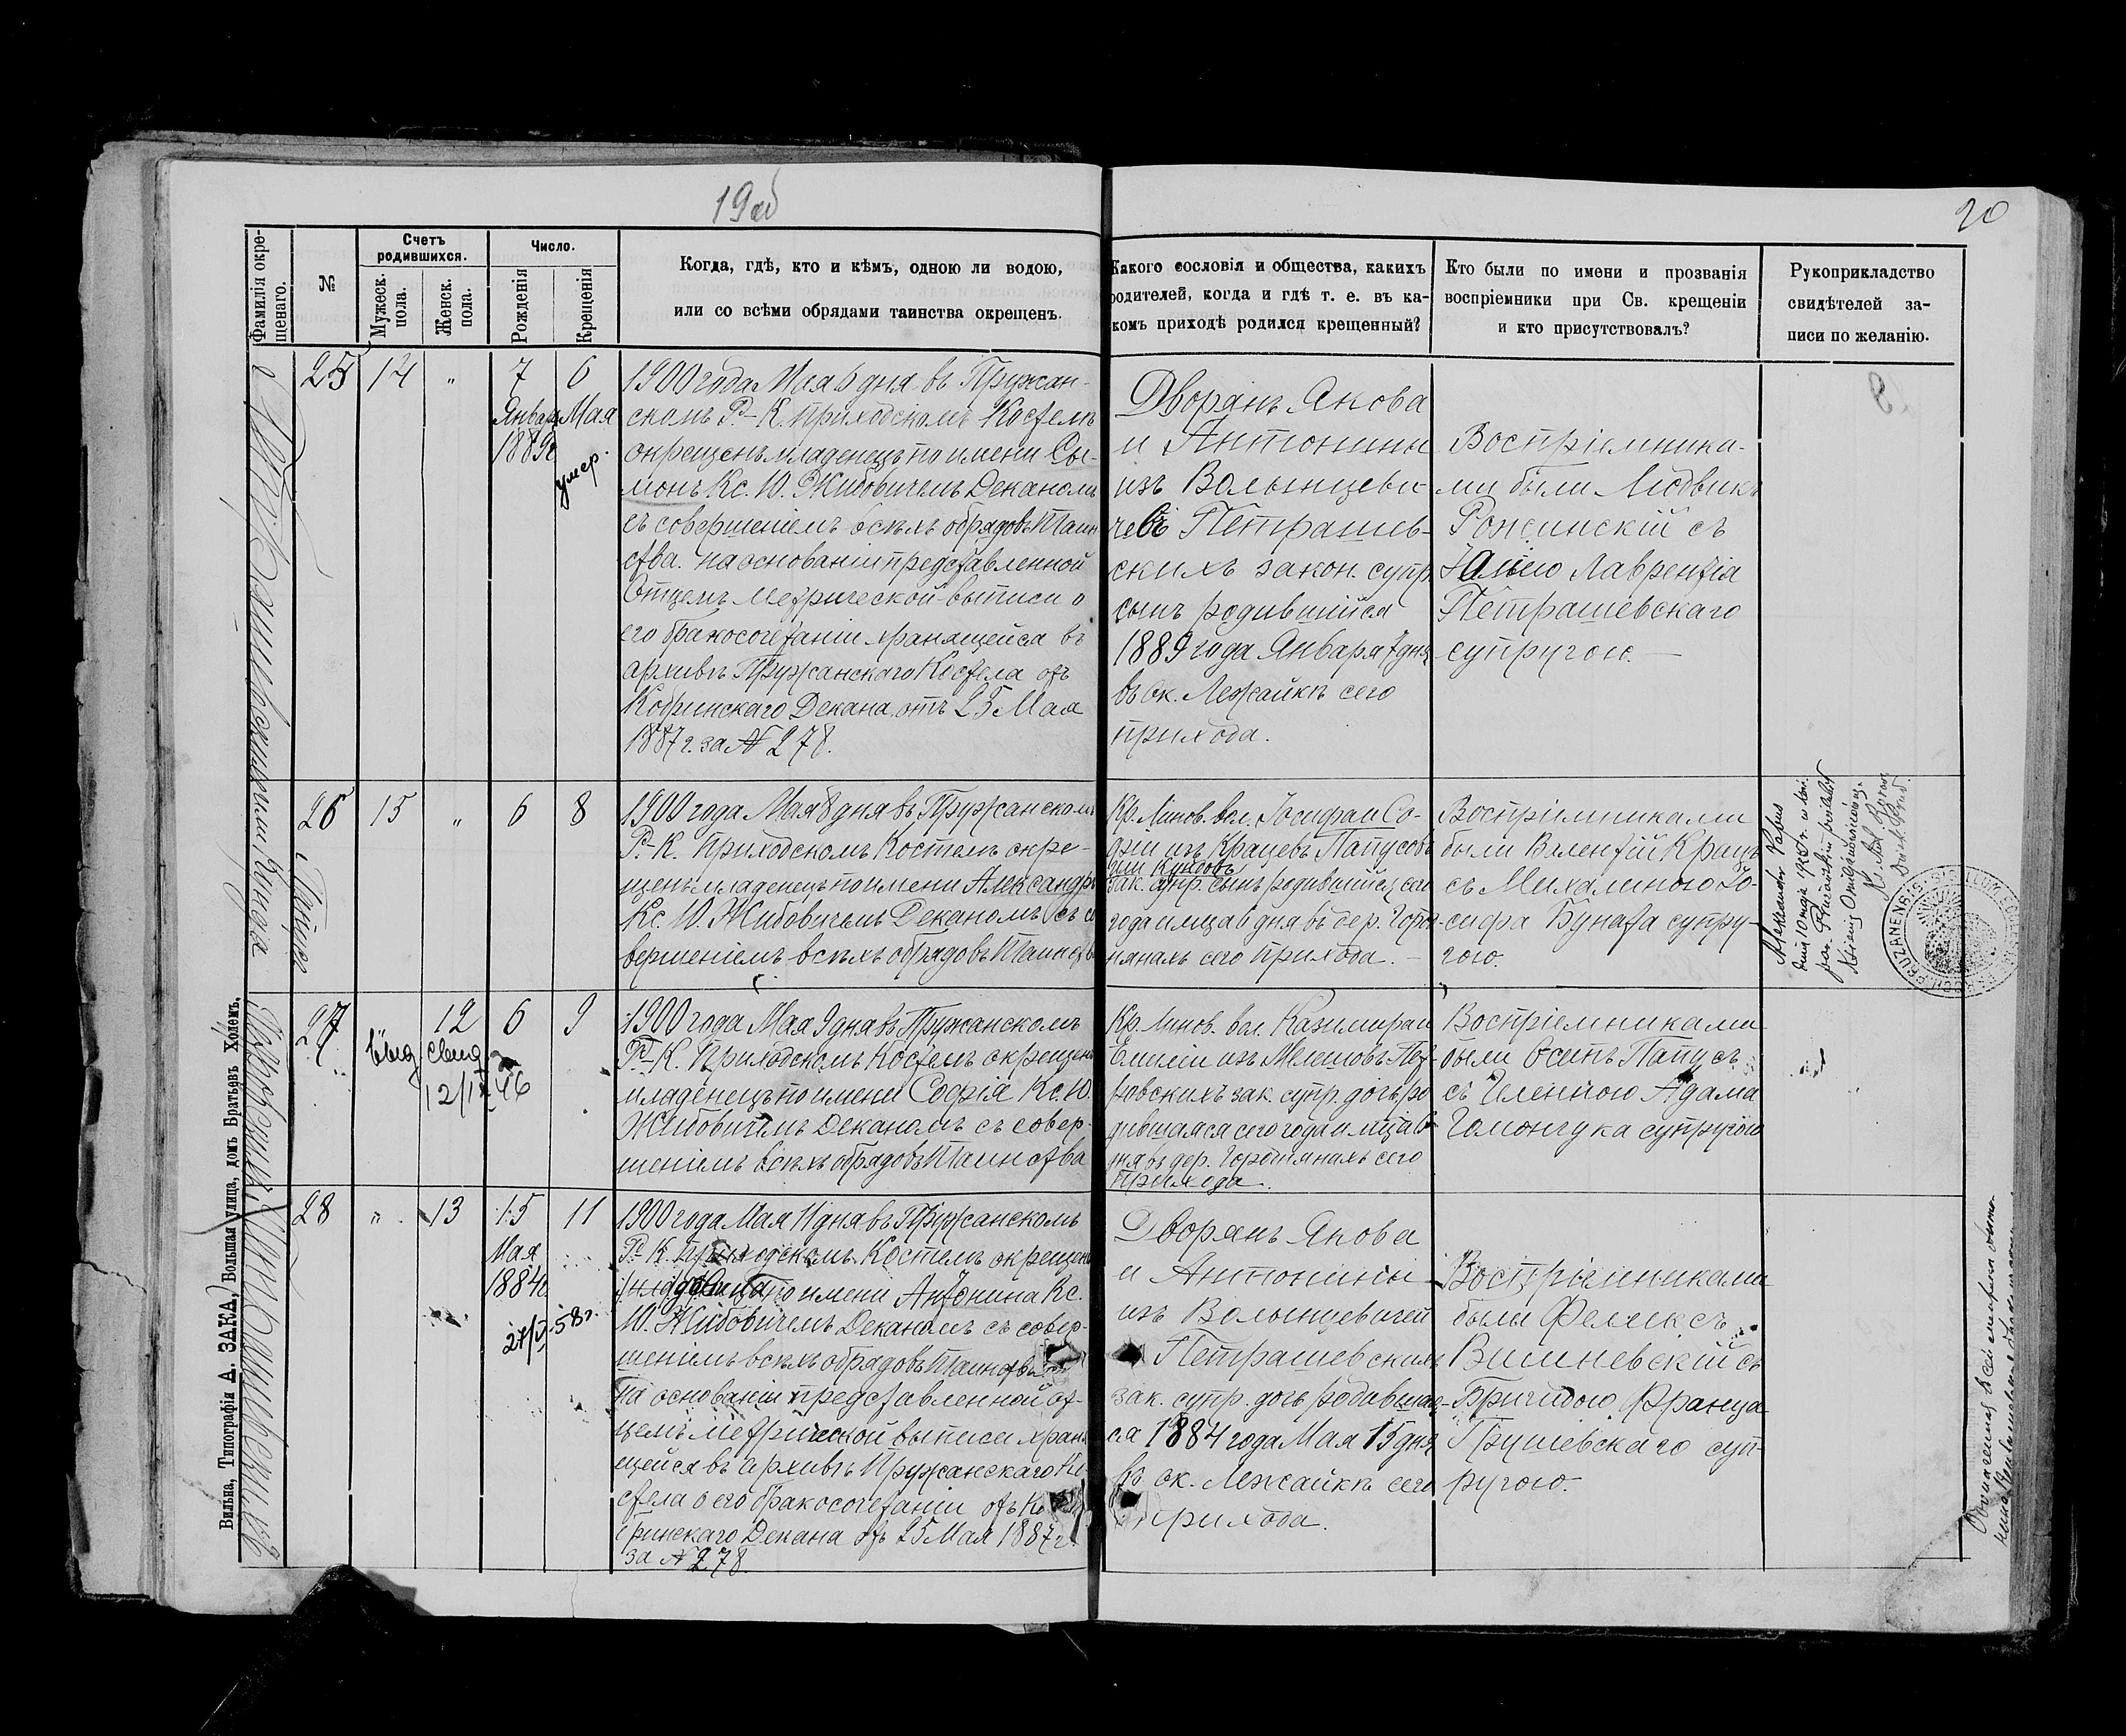 19об
20
Фамилія окре-
щенаго.
№
Счетъ
родившихся.
Мужеск.
пола.
Женск.
пола.
Число.
Рожденія
Крещенія
Когда, гдѣ, кто и кѣмъ, одною ли водою,
или со всѣми обрядами таинства окрещенъ.
Какого сословія и общества, какихъ
родителей, когда и гдѣ т. е. въ ка-
комъ приходѣ родился крещенный?
Кто были по имени и прозванія
воспріемники при Св. крещеніи
и кто присутствовалъ?
Рукоприкладство
свидѣтелей за-
писи по желанію.
25
14
"
7
Января
1889г
6
Мая
умер.
1900 года Мая 6 дня въ Пружан-
скомъ Р.-К. приходскомъ Костелѣ
окрещенъ младенецъ по имени Сы-
монъ Кс. Ю. Жибовичемъ Деканомъ
съ совершеніемъ всѣхъ обрядовъ Таин
ства. на основаніи представленной
Отцемъ Метрической выписи о
его бракосочетаніи хранящейся въ
архивѣ Пружанскаго Костела отъ
Кобринскаго Декана отъ 25 Мая
1887 г. за № 278.
Дворянъ Якова
и Антонины
изъ Волынцеви-
чевъ Петрашев-
скихъ закон. супр.
сынъ родившійся
1889 года Января 7 дня
въ ок. Лежайкѣ сего
прихода.
Воспріемника-
ми были Людвикъ
Рожинскій съ
Лаврентія
Петрашевскаго
супругою.
26
Папусъ
15
"
6
8
1900 года Мая 8 дня въ Пружанскомъ
Р.-К. Приходскомъ Костелѣ окре-
щенъ младенецъ по имени Александръ
Кс. Ю. Жибовичемъ Деканомъ съ со
вершеніемъ всѣхъ обрядовъ Таинства
Кр. Линов. вол. Іосифа и Со-
фіи изъ Крацевъ Папусовъ
зак. супр. сынъ родившійся сего
года и мца 6 дня въ дер. Горо-
нянахъ сего прихода.
Воспріемниками
были Валентій Крацъ
съ Михалиною Іо-
сифа Бунта супру-
гою.
Aleksander Papus
dnia 10 maja 1925 r. w kośc.
par. Prużańskim poślubił
Ksenię
27
выд. свид.
12/IX 46
12
6
9
1900 года Мая 9 дня въ Пружанскомъ
Р.-К. Приходскомъ Костелѣ окрещенъ
младенецъ по имени Софія Кс. Ю.
Жибовичемъ Деканомъ съ совер-
шеніемъ всѣхъ обрядовъ Таинства
Кр. Линов. вол. Казимира и
Емиліи изъ Мелешовъ
зак. супр. дочь ро
дившаяся сего года и мца 6
дня въ дер. сего
Прихода.
Воспріемниками
были Осипъ Папусъ
съ Еленною Адама
Гомончука супругою
28
"
13
15
Мая
1884г
27/V 58г.
11
1900 года Мая 11 дня въ Пружанскомъ
Р.-К. приходскомъ Костелѣ окрещенъ
младеница по имени Антонина Кс.
Ю. Жибовичемъ Деканомъ съ совер-
шеніемъ всѣхъ обрядовъ Таинства
на основаніи представленной от-
цемъ метрической выписи храня
щейся въ архивѣ Пружанскаго Ко-
стела о его бракосочетаніи отъ Коб
ринскаго Декана отъ 25 Мая 1887 г
за № 278.
Дворянъ Якова
и Антонины
изъ Волынцевичей
Петрашевскихъ
зак. супр. дочь родившая-
ся 1884 года Мая 15 дня
въ ок. Лежайкѣ сего
прихода.
Воспріемниками
были Феликсъ
Вишневскій съ
Бригидою Франца
Грушевскаго суп-
ругою.
Вильна, Типографія А. ЗАКА, Большая улица, домъ Братьевъ Холемъ.